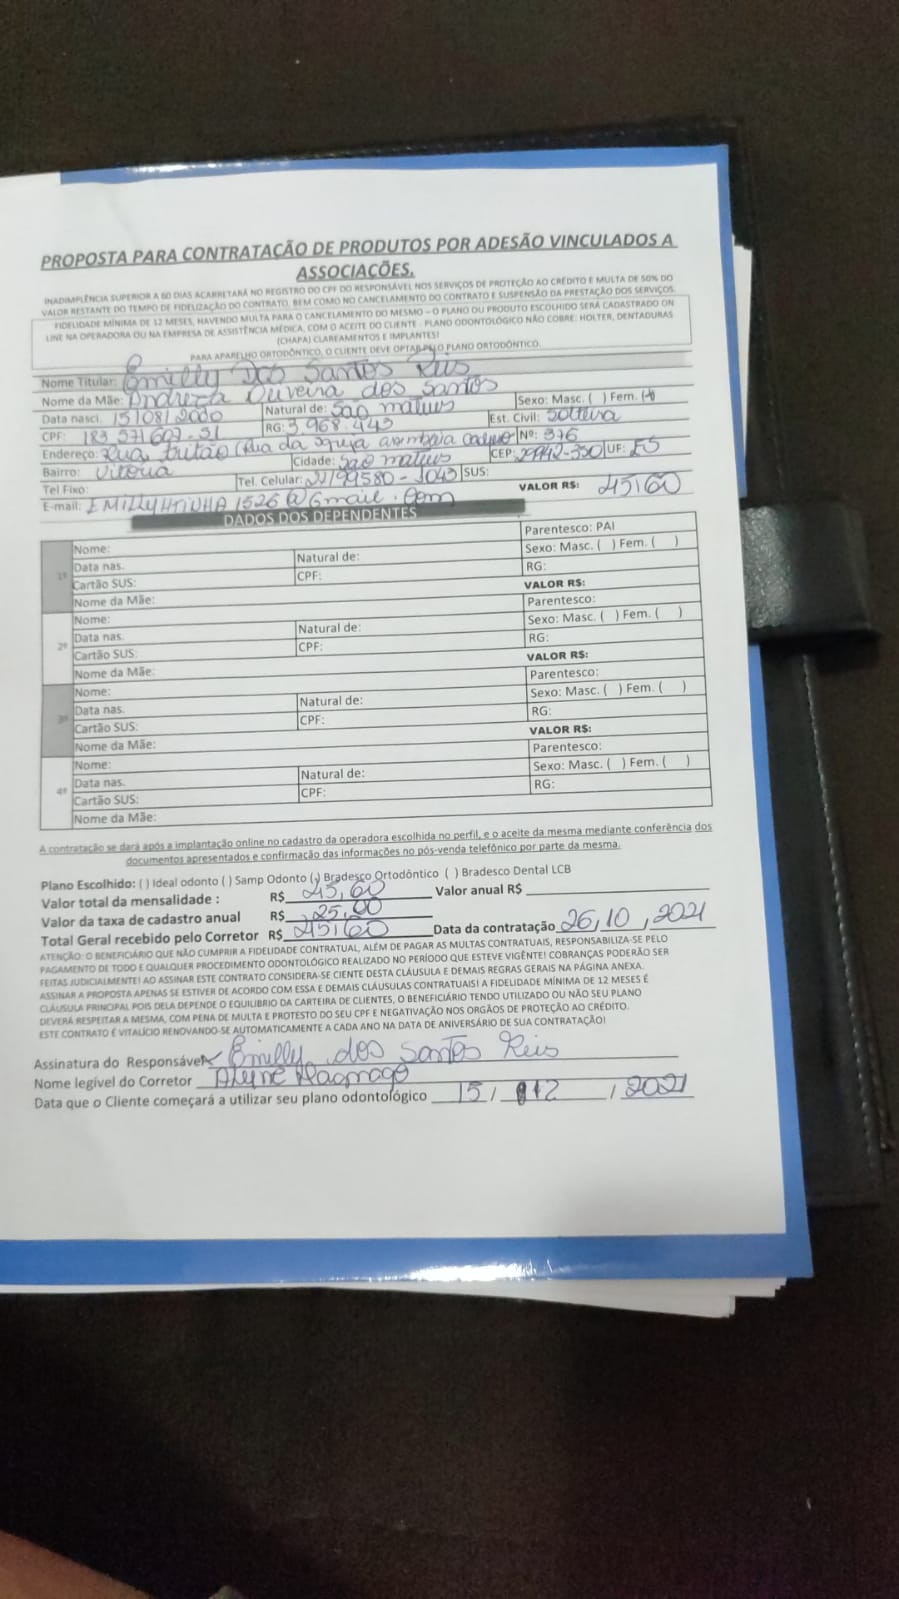 PROPOSTA PARA CONTRATAÇÃO DE PRODUTOS POR ADESÃO VINCULADOS A
ASSOCIAÇÕES.
INADIMPLÊNCIA SUPERIOR A 60 DIAS ACARRETARÁ NO REGISTRO DO CPF DO RESPONSÁVEL NOS SERVIÇOS DE PROTEÇÃO AO CRÉDITO E MULTA DE 50% DO
VALOR RESTANTE DO TEMPO DE FIDELIZAÇÃO DO CONTRATO, BEM COMO NO CANCELAMENTO DO CONTRATO E SUSPENSÃO DA PRESTAÇÃO DOS SERVIÇOS.
FIDELIDADE MÍNIMA DE 12 MESES, HAVENDO MULTA PARA O CANCELAMENTO DO MESMO – O PLANO OU PRODUTO ESCOLHIDO SERÁ CADASTRADO ON
LINE NA OPERADORA OU NA EMPRESA DE ASSISTÊNCIA MÉDICA, COM O ACEITE DO CLIENTE - PLANO ODONTOLÓGICO NÃO COBRE: HOLTER, DENTADURAS
(CHAPA) CLAREAMENTOS E IMPLANTES!
PARA APARELHO ORTODÔNTICO, O CLIENTE DEVE OPTAR PELO PLANO ORTODÔNTICO.
Nome Titular: Emilly Dos Santos Reis
Nome da Mãe: Andreza Oliveira dos Santos Sexo: Masc. ( ) Fem. (x)
Data nasci. 15/08/2000 Natural de: São mateus Est. Civil: Solteira
CPF: 183 571 607-51 RG: 3 968.443
Endereço: Rua tritão (Rua da Igreja Nº: 376
Bairro: Vitória Cidade: São mateus CEP: 29942-350 UF: ES
Tel Fixo: Tel. Celular: 99580-1043 SUS:
E-mail: EMILLYHTINHA1526@Gmail.Com VALOR R$: 45,60
DADOS DOS DEPENDENTES
1º Nome: Parentesco: PAI
Data nas. Natural de: Sexo: Masc. ( ) Fem. ( )
Cartão SUS: CPF: RG:
Nome da Mãe: VALOR R$:
2º Nome: Parentesco:
Data nas. Natural de: Sexo: Masc. ( ) Fem. ( )
Cartão SUS: CPF: RG:
Nome da Mãe: VALOR R$:
3º Nome: Parentesco:
Data nas. Natural de: Sexo: Masc. ( ) Fem. ( )
Cartão SUS: CPF: RG:
Nome da Mãe: VALOR R$:
4º Nome: Parentesco:
Data nas. Natural de: Sexo: Masc. ( ) Fem. ( )
Cartão SUS: CPF: RG:
Nome da Mãe:
A contratação se dará após a implantação online no cadastro da operadora escolhida no perfil, e o aceite da mesma mediante conferência dos
documentos apresentados e confirmação das informações no pós-venda telefônico por parte da mesma.
Plano Escolhido: ( ) Ideal odonto ( ) Samp Odonto (x) Bradesco Ortodôntico ( ) Bradesco Dental LCB
Valor total da mensalidade : R$ 45,60 Valor anual R$
Valor da taxa de cadastro anual R$ 25,00
Total Geral recebido pelo Corretor R$ 45,60 Data da contratação 26,10,2021
ATENÇÃO: O BENEFICIÁRIO QUE NÃO CUMPRIR A FIDELIDADE CONTRATUAL, ALÉM DE PAGAR AS MULTAS CONTRATUAIS, RESPONSABILIZA-SE PELO
PAGAMENTO DE TODO E QUALQUER PROCEDIMENTO ODONTOLÓGICO REALIZADO NO PERÍODO QUE ESTEVE VIGÊNTE! COBRANÇAS PODERÃO SER
FEITAS JUDICIALMENTE! AO ASSINAR ESTE CONTRATO CONSIDERA-SE CIENTE DESTA CLÁUSULA E DEMAIS REGRAS GERAIS NA PÁGINA ANEXA.
ASSINAR A PROPOSTA APENAS SE ESTIVER DE ACORDO COM ESSA E DEMAIS CLÁUSULAS CONTRATUAIS! A FIDELIDADE MÍNIMA DE 12 MESES É
CLÁUSULA PRINCIPAL POIS DELA DEPENDE O EQUILIBRIO DA CARTEIRA DE CLIENTES, O BENEFICIÁRIO TENDO UTILIZADO OU NÃO SEU PLANO
DEVERÁ RESPEITAR A MESMA, COM PENA DE MULTA E PROTESTO DO SEU CPF E NEGATIVAÇÃO NOS ORGÃOS DE PROTEÇÃO AO CRÉDITO.
ESTE CONTRATO É VITALÍCIO RENOVANDO-SE AUTOMATICAMENTE A CADA ANO NA DATA DE ANIVERSÁRIO DE SUA CONTRATAÇÃO!
Assinatura do Responsável Emilly dos Santos Reis
Nome legível do Corretor Alyne
Data que o Cliente começará a utilizar seu plano odontológico 15 / 12 / 2021